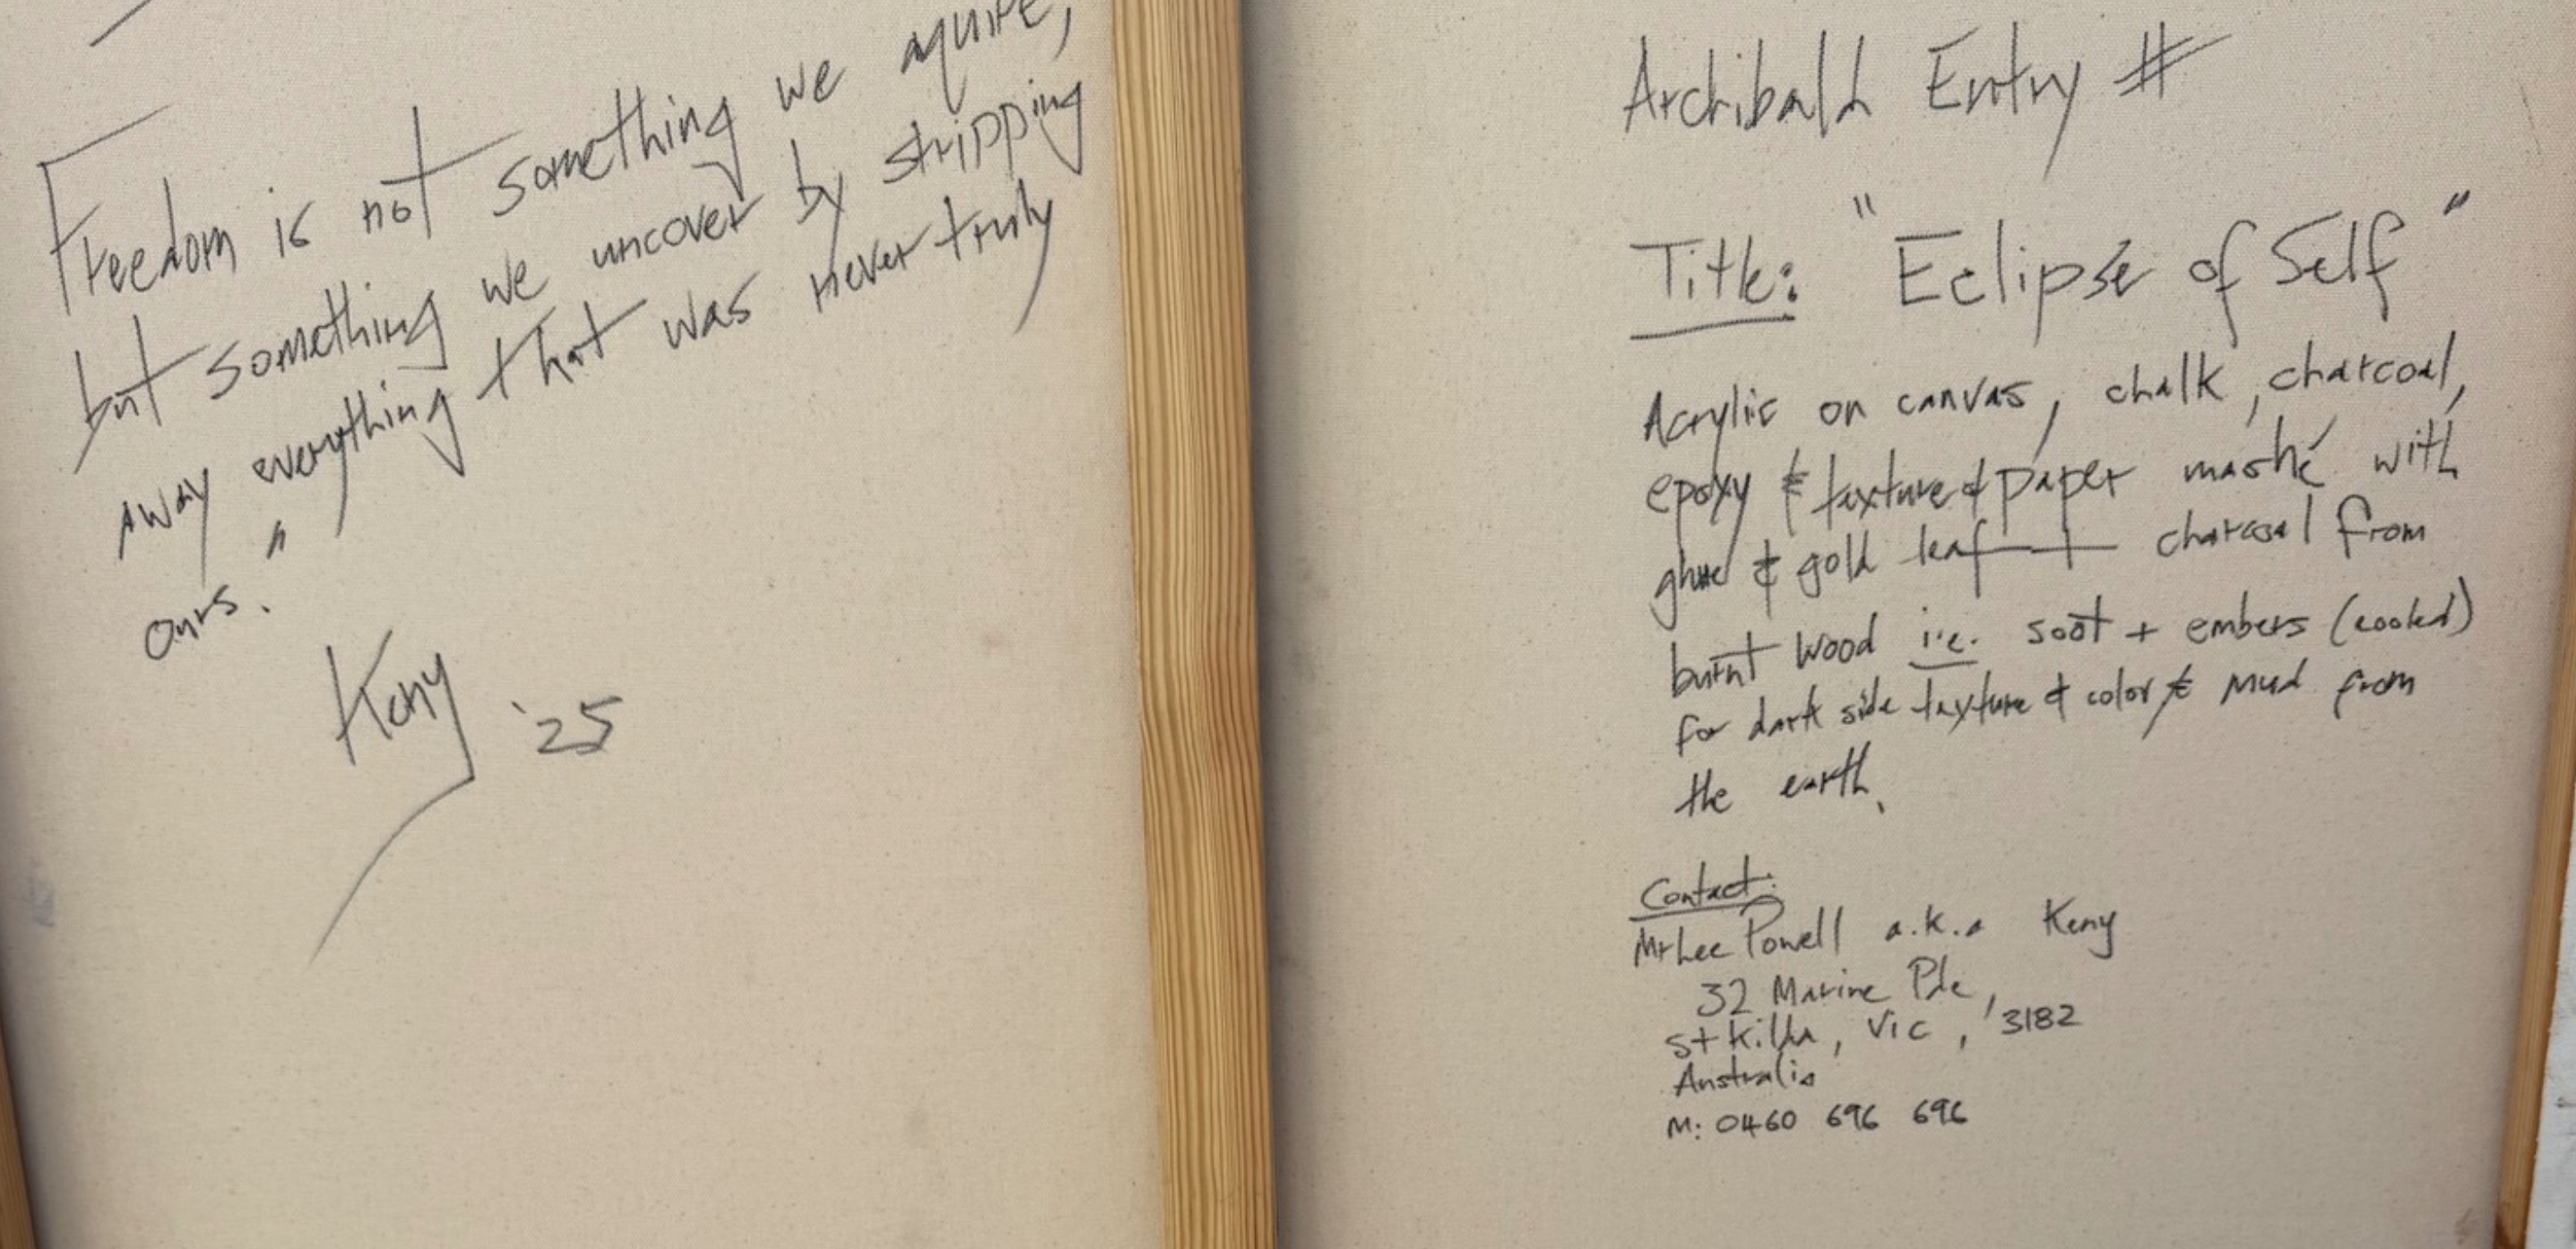 Freedom is not something we aquire,
but something we uncover by stripping
away everything that was never truly
ours."
Keny '25
Archibald Entry #
Title: "Eclipse of Self"
Acrylic on canvas, chalk, charcoal,
epoxy & texture & paper mashé with
glue & gold leaf + charcoal from
burnt wood i.e. soot + embers (cooled)
for dark side texture & color & mud from
the earth.
Contact:
Mr Lee Powell a.k.a Keny
32 Marine Pde,
St Kilda, Vic, 3182
Australia
M: 0460 696 696